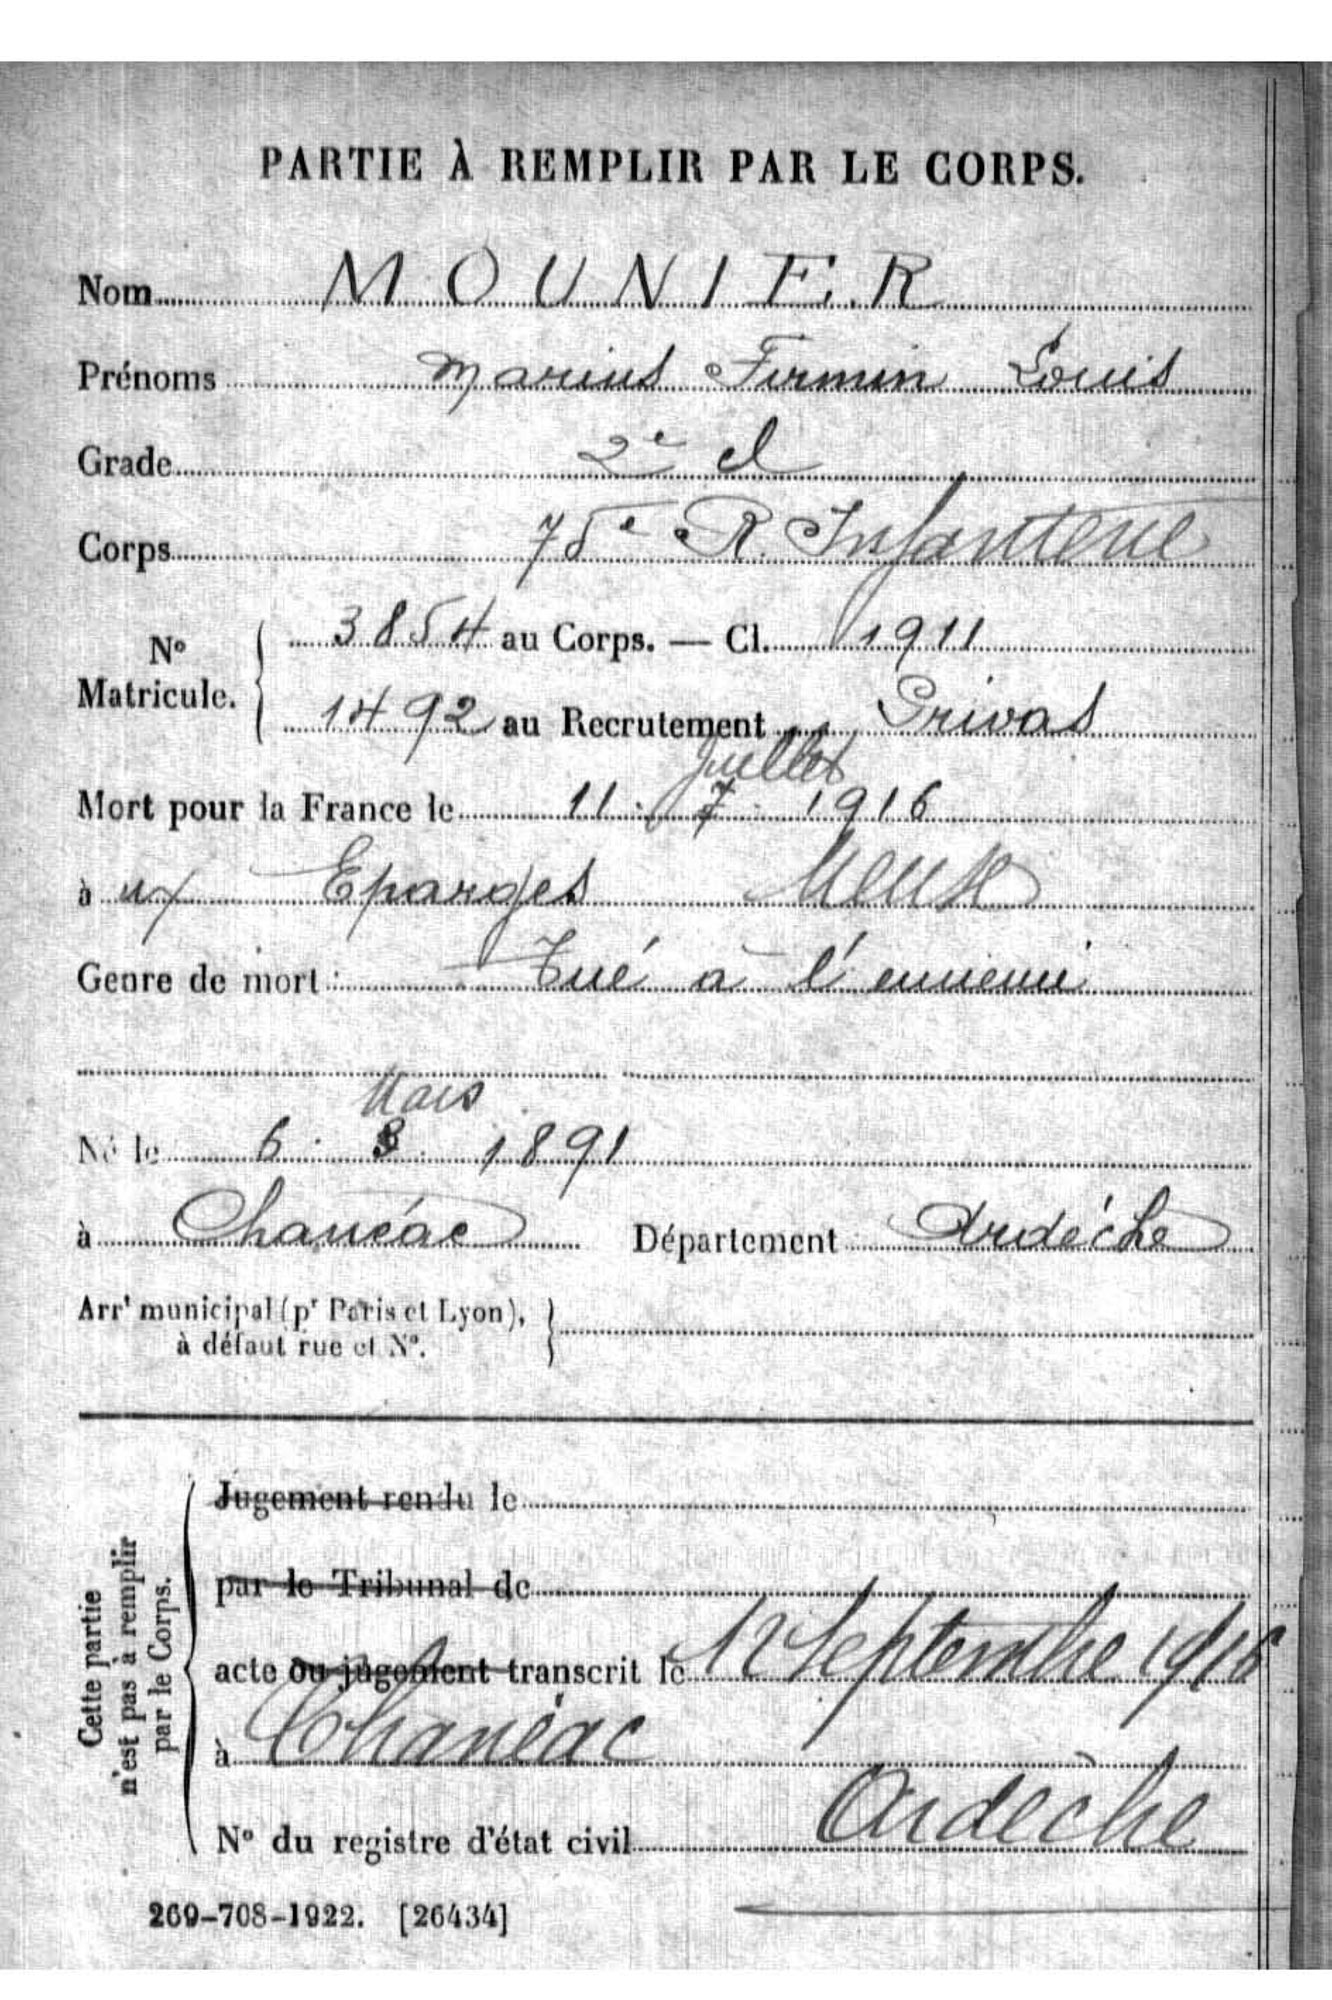 PARTIE À REMPLIR PAR LE CORPS.
Nom MOUNIER
Prénoms Marius Firmin Louis
Grade 2e cl
Corps 75e R. Infanterie
No Matricule. 3854 au Corps. — Cl. 1911
1492 au Recrutement Privas
Juillet
Mort pour la France le 11. 7. 1916
à ux Eparges Meuse
Genre de mort : Tué à l'ennemi
Mars
Né le 6. 3. 1891
à Chanéac Département Ardéche
Arrt municipal (pr Paris et Lyon),
à défaut rue et No.
Jugement rendu le
par le Tribunal de
acte ou jugement transcrit le 12 Septembre 1916
à Chanéac
Ardèche
No du registre d'état civil
Cette partie
n'est pas à remplir
par le Corps.
269-708-1922. [26434]